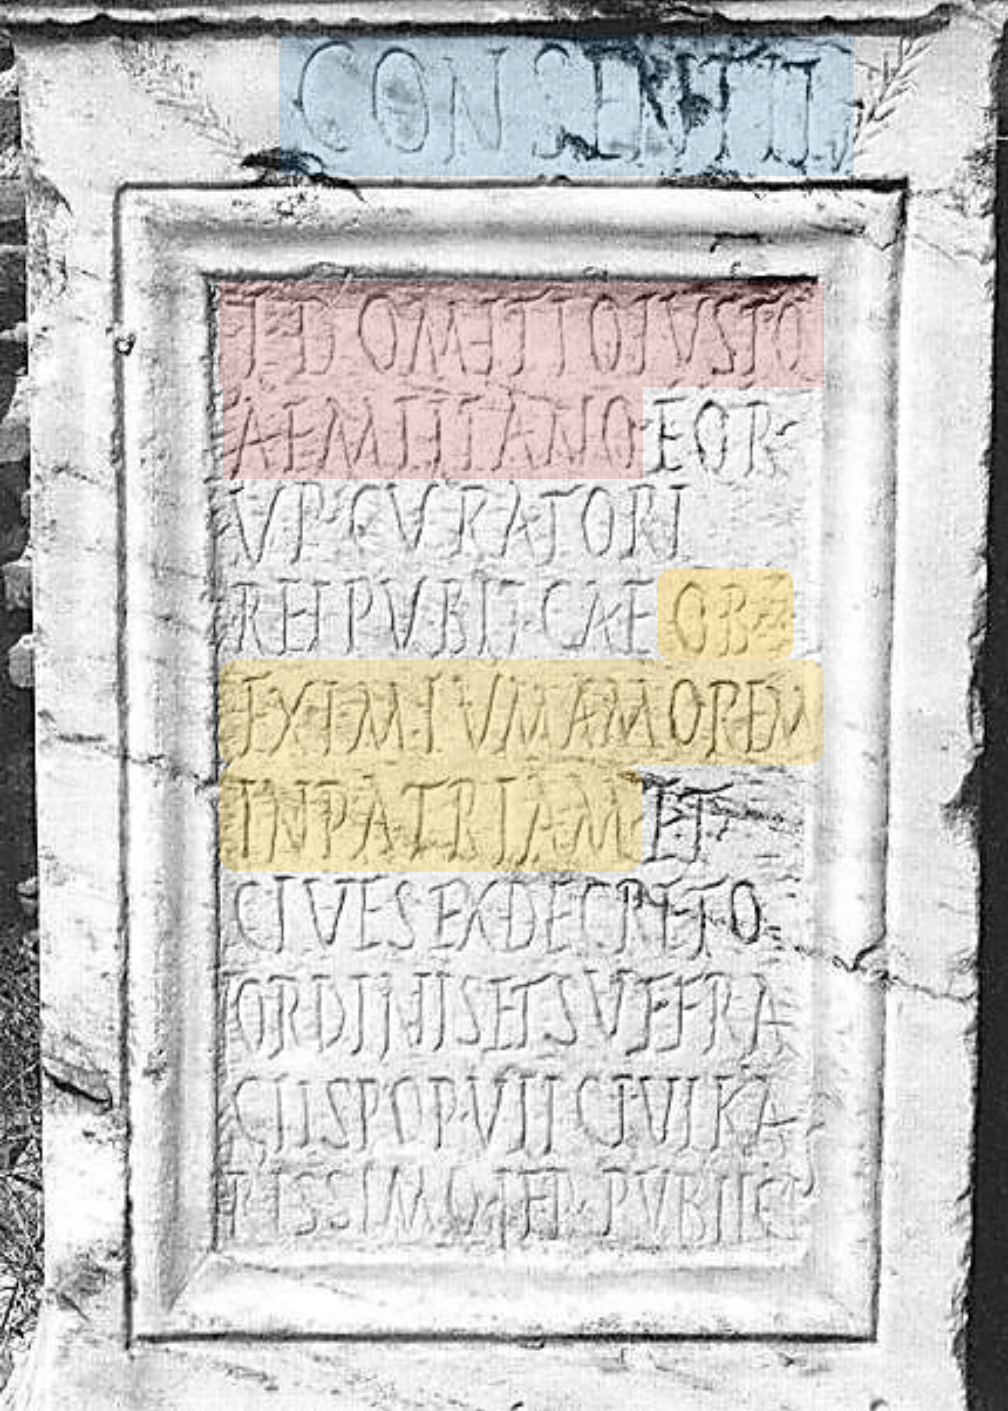 CONSENTII
AEMILIANO EQ R
V P CVRATORI
REI PVBLICAE OB
EXIMIVM AMOREM
IN PATRIAM ET
CIVES EX DECRETO
ORDINIS ET SVFFRA
GIIS POPVLI CIVI KA
RISSIMO PVBLIC